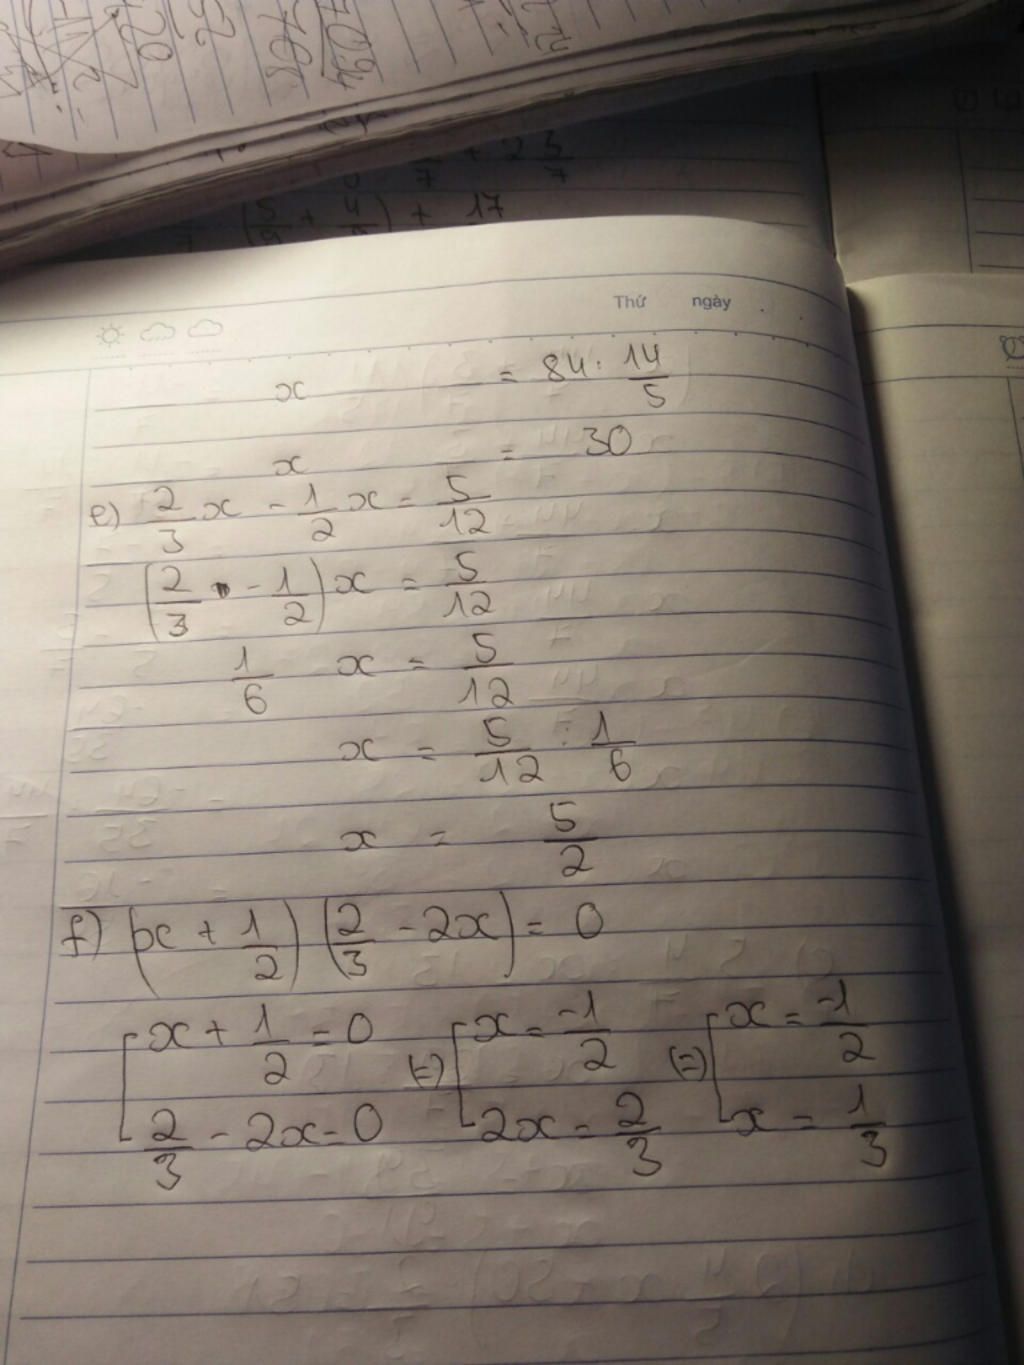 + 2 5/7
(5/9 + 4/9) + 17
Thứ ngày
x = 84 : 14/5
x = 30
e) 2/3 x - 1/2 x = 5/12
(2/3 - 1/2) x = 5/12
1/6 x = 5/12
x = 5/12 : 1/6
x = 5/2
f) (x + 1/2) (2/3 - 2x) = 0
[x + 1/2 = 0 (=) [x = -1/2 (=) [x = -1/2
2/3 - 2x = 0 2x = 2/3 x = 1/3